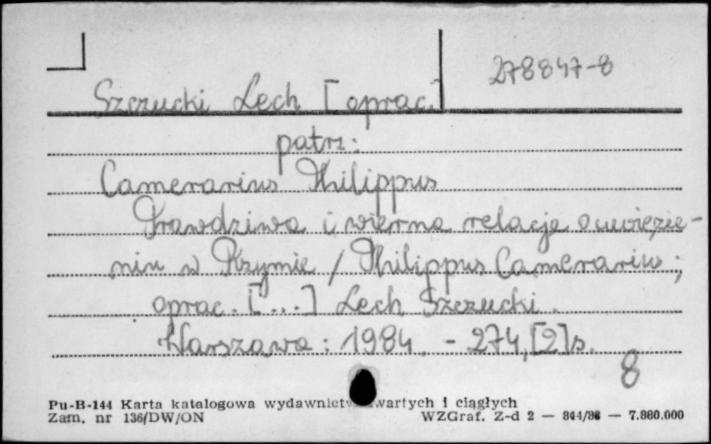 278847-8
Szczucki Lech [oprac.]
patrz:
Camerarius Philippus
Prawdziwa i wierna relacja o uwięzie-
niu w Rzymie / Philippus Camerarius ;
oprac. [...] Lech Szczucki.
Warszawa : 1984. - 274,[2]s.
8
Pu-B-144 Karta katalogowa wydawnictw zwartych i ciągłych
Zam. nr 136/DW/ON WZGraf. Z-d 2 — 844/86 — 7.860.000